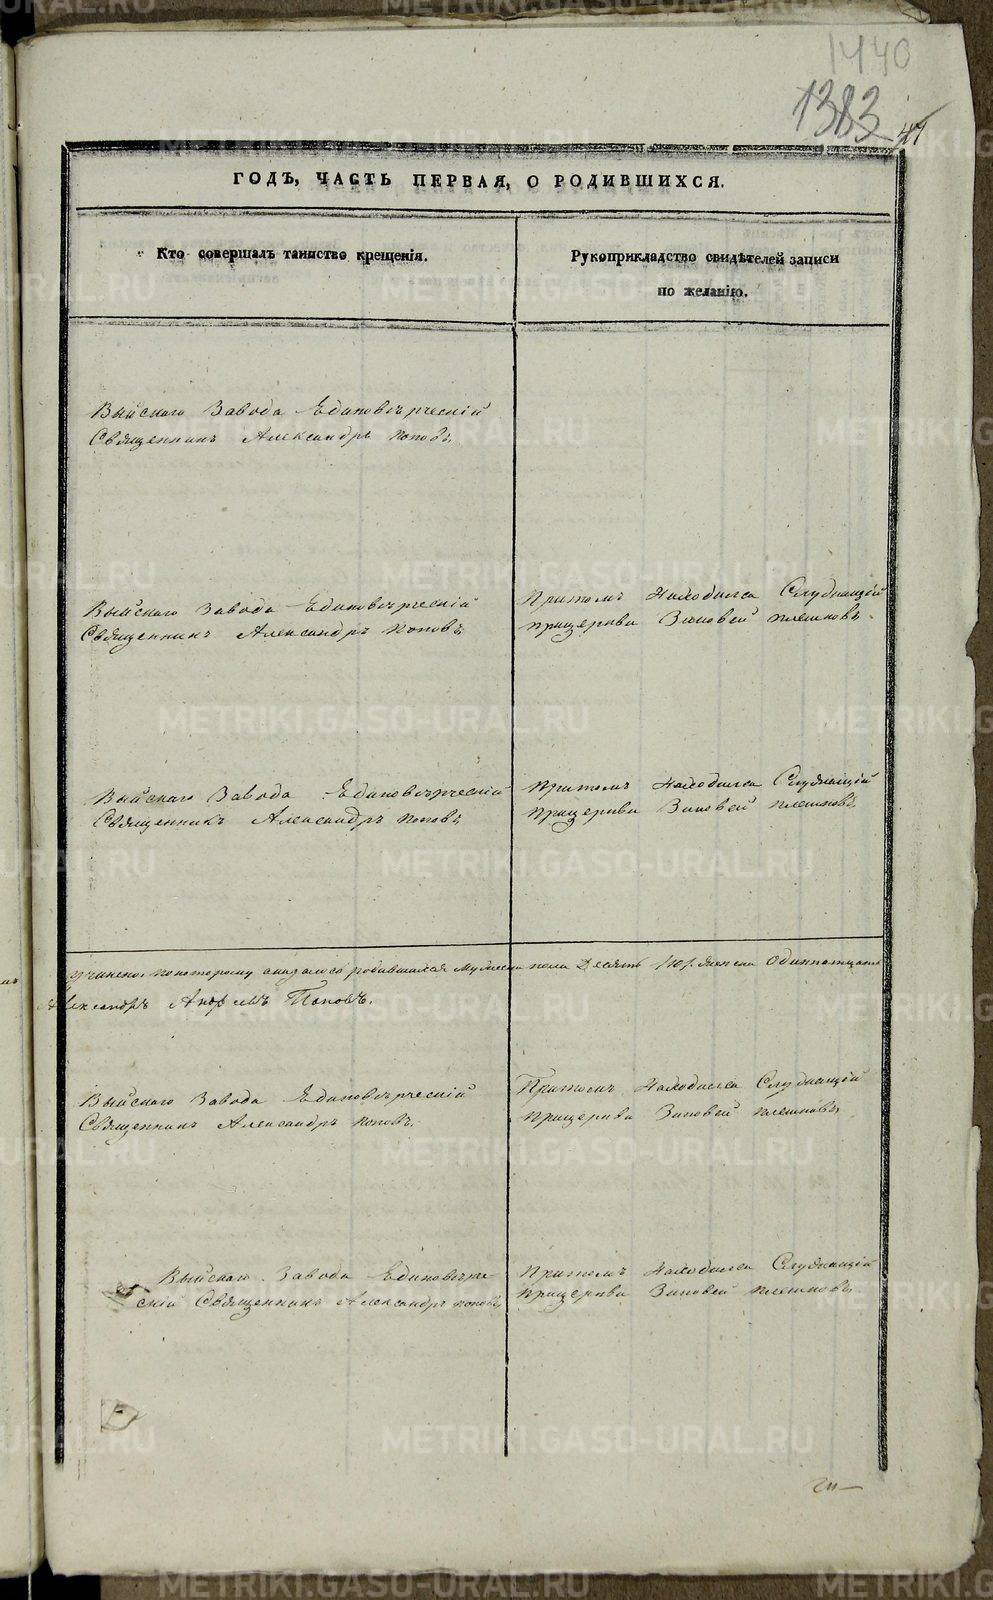 1440
1383
47
ГОДЪ, ЧАСТЬ ПЕРВАЯ, О РОДИВШИХСЯ.
Кто совершалъ таинство крещенія.
Рукоприкладство свидѣтелей записи
по желанію.
Выйскаго Завода Единовѣрческій
Священникъ Александръ Поповъ
Выйскаго Завода Единовѣрческій
Священникъ Александръ Поповъ
Притомъ Находился Служащій
прицеркви Зиновей Плешковъ
Выйскаго Завода Единовѣрческій
Священникъ Александръ Поповъ
Притомъ Находился Служащій
прицеркви Зиновей Плешковъ
учинено, покоторому оказалось родившихся Мужеска пола Десять 10, женска Одиннатцать
Александръ Поповъ.
Выйскаго Завода Единовѣрческій
Священникъ Александръ Поповъ.
Притомъ Находился Служащій
прицеркви Зиновей Плешковъ
Выйскаго Завода Единовѣрче-
скій Священникъ Александръ Поповъ
Притомъ Находился Служащій
прицеркви Зиновей Плешковъ
METRIKI.GASO-URAL.RU